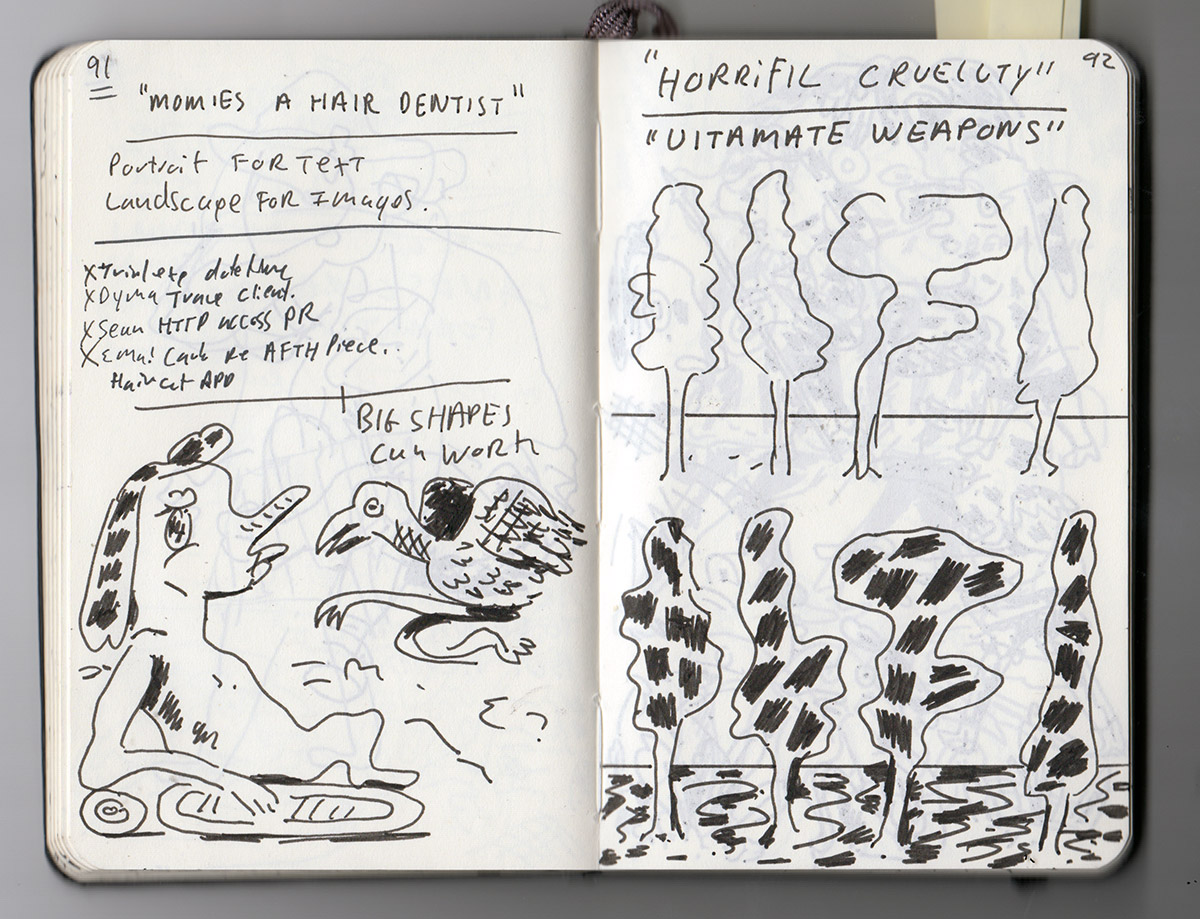 91
"MOMIES A HAIR DENTIST"
Portrait FOR TEXT
Landscape FOR Images.
X
X Dyma Trace Client.
X Sean HTTP access PR
X Email Re AFTH Piece..
Haircut APP
BIG SHAPES
Can Work
92
"HORRIFIL CRUELUTY"
"UITAMATE WEAPONS"